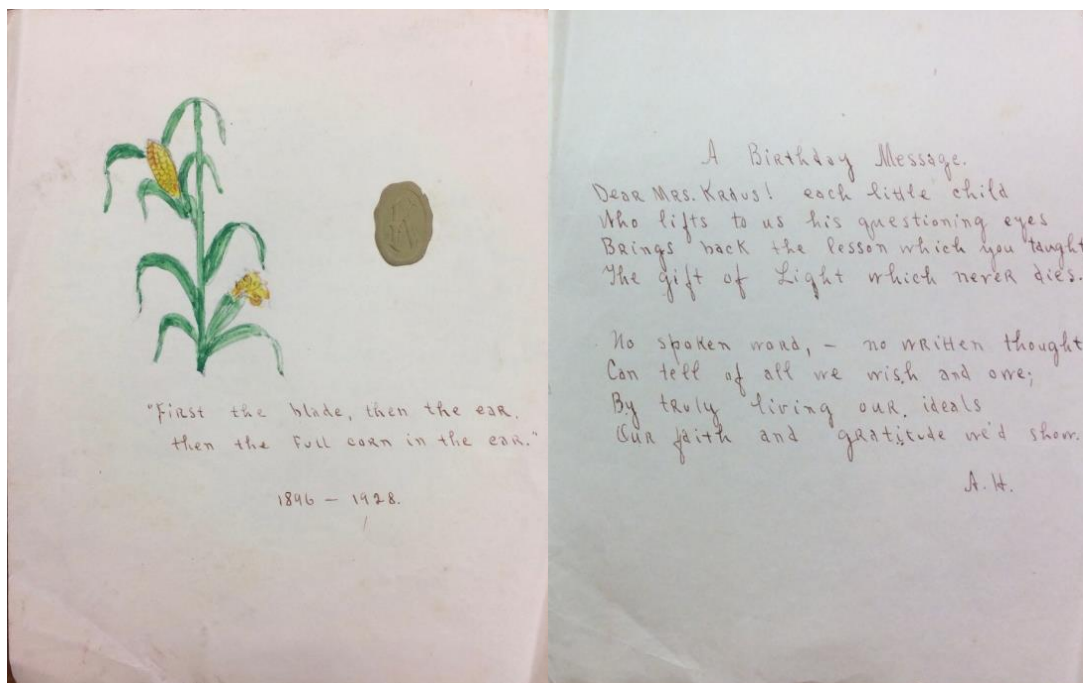 "First the blade, then the ear,
then the full corn in the ear."
1896 – 1928.
A Birthday Message.
Dear Mrs. Kraus! each little child
Who lifts to us his questioning eyes
Brings back the lesson which you taught
The gift of Light which never dies.
No spoken word, – no written thought
Can tell of all we wish and owe;
By truly living our ideals
Our faith and gratitude we'd show.
A.H.